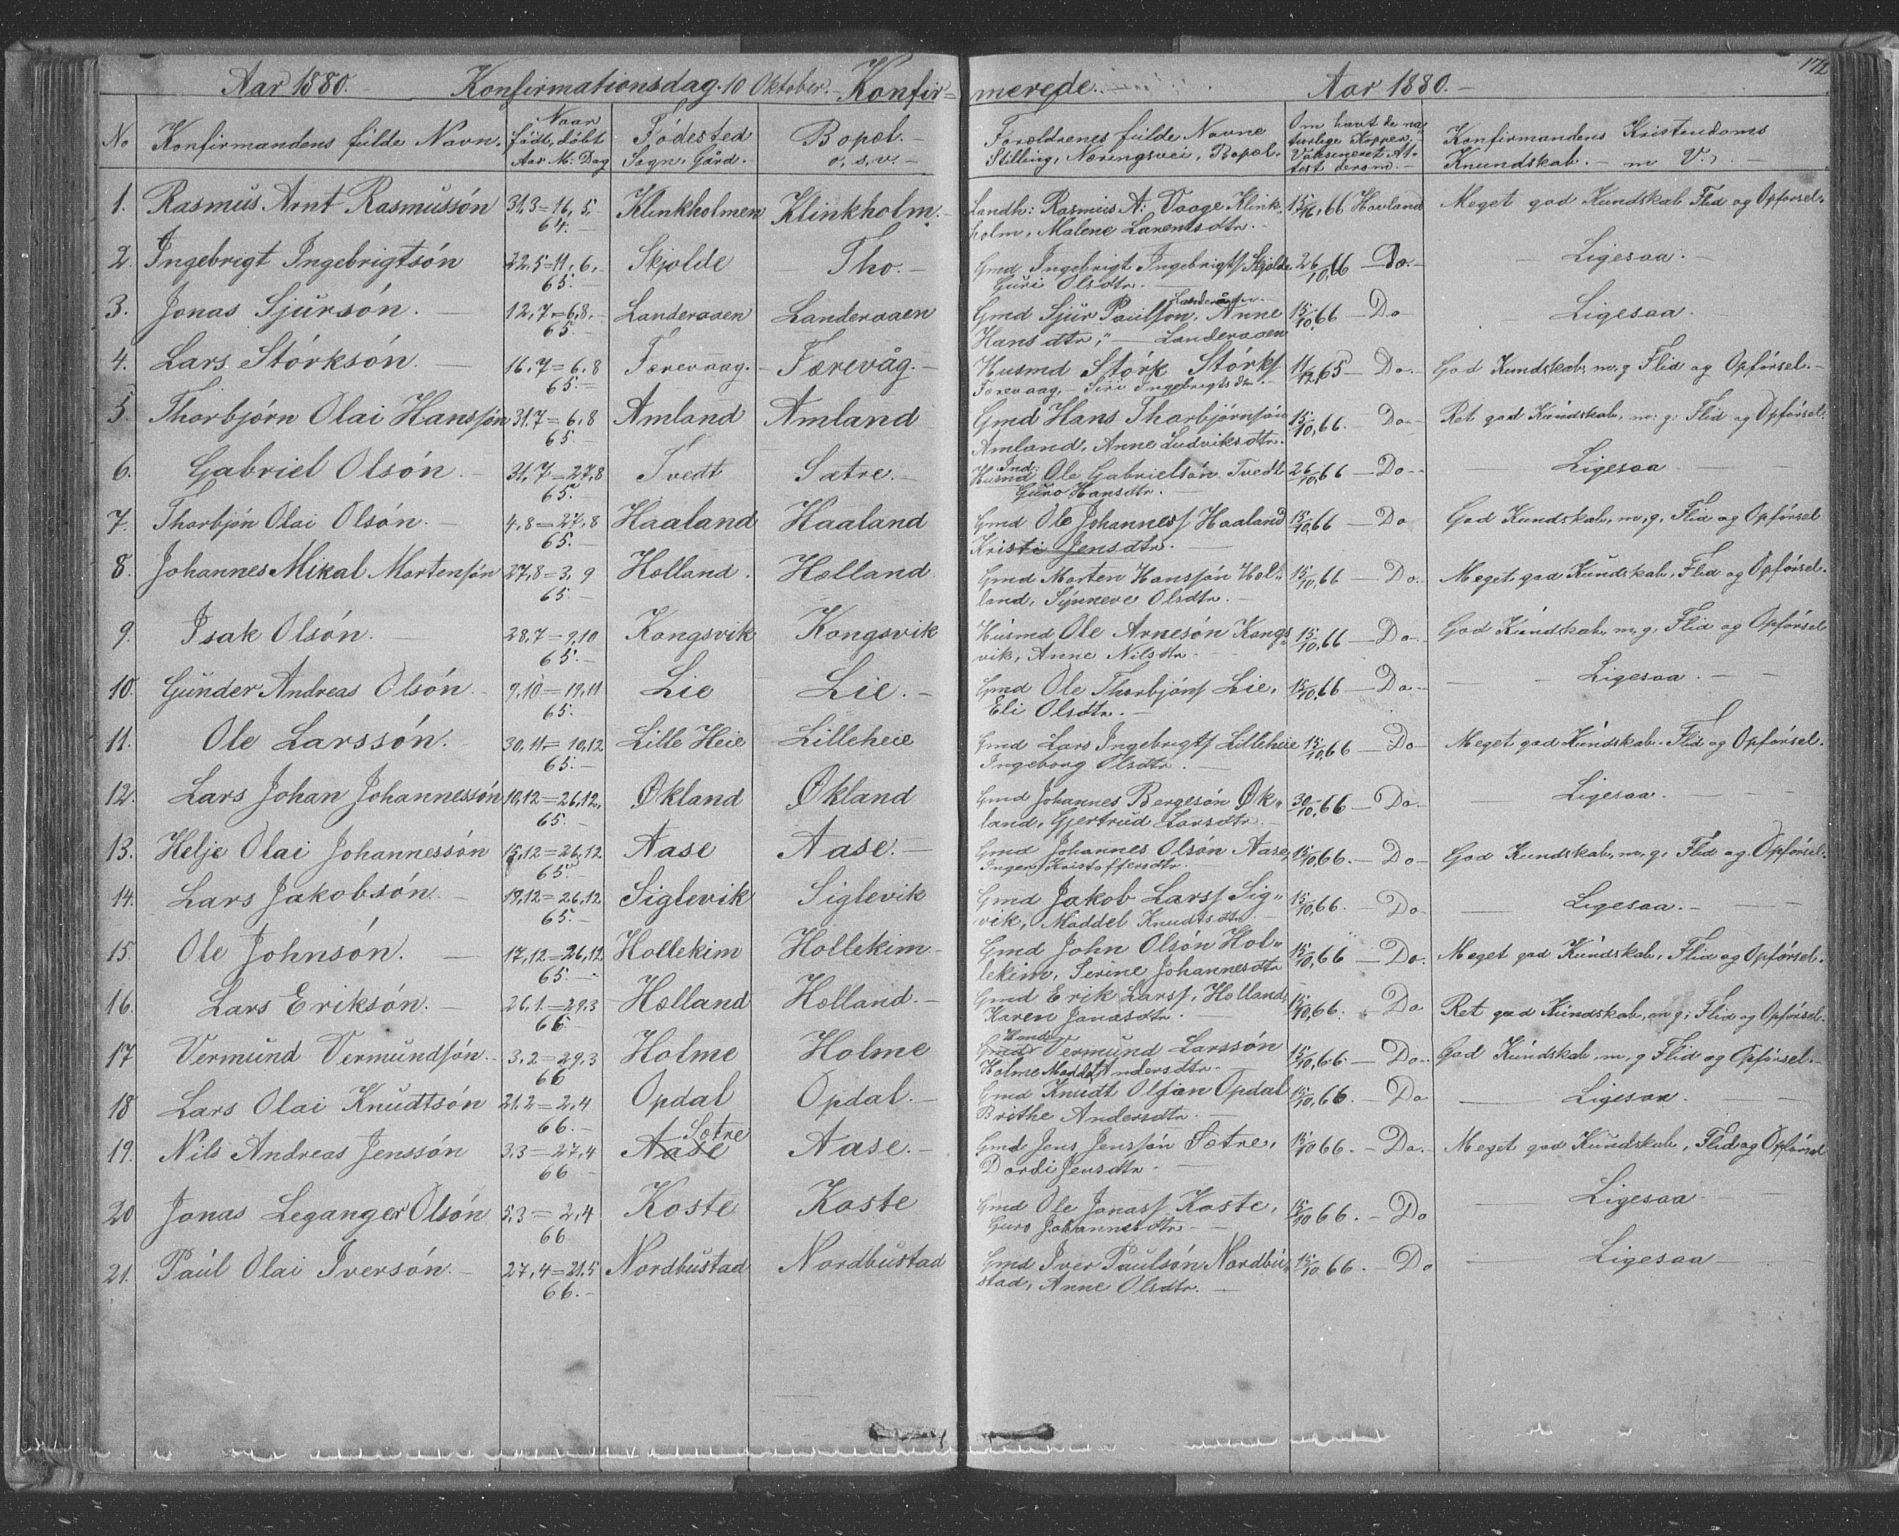 172
Aar 1880. Konfirmationsdag. 10 Oktober. Konfir= merede. Aar 1880.
No Konfirmandens fulde Navn. Naar født, døbt Aar M. Dag Fødested Sogn, Gård. Bopæl. o. s. v. Forældrenes fulde Navne Stilling, Næringsvei, Bopæl. Om havt de naturlige Kopper, Vaksineret Attest derom. Konfirmandens Kristendoms Knundskab. m V.
1. Rasmus Arnt Rasmussón 31,3=16,5. Klinkholmen Klinkholm. Landh: Rasmus A: Vaage Klink 15/10,66 Hovland Meget god Kundskab Flid og Opførsel.
64. holm, Malene Larentsdtr.
2. Ingebrigt Ingebrigtsón 22,5=11,6, Skjolde Tho. Gmd Ingebrigt Ingebrigts. Skjolde 26/10,66 Do. Ligesaa.
65. Guri Olsdtr.
3. Jonas Sjursón. 12,7=6,8, Landeraaen Landeraaen Gmd Sjur Paulsson, Anne 15/10,66 Do Ligesaa.
65. Hansdtr, Landeraaen
4. Lars Stórksón. 16,7=6,8 Færevaag. Færevåg. Husmd Stórk Stórks. 11/12,65 Do. God Kundskab, m, g Flid og Opførsel.
65. Færevaag, Siri Ingebrigtsdtr.
5. Thorbjørn Olai Hanssón 31,7=6,8 Amland Amland Gmd Hans Thorbjørnsón 15/10,66. Do. Ret god Kundskab, m: g: Flid og Opførsel.
65. Amland, Anne Ludviksdtr.
6. Gabriel Olsón. 31,7=27,8 Tvedt Satre. Ind: Husmd Ole Gabrielsón Tvedt 26/10,66 Do. Ligesaa
65. Guro Hansdtr.
7. Thorbjón Olai Olsón. 4,8=27,8 Haaland Haaland Gmd Ole Johanness. Haaland 15/10,66 Do God Kundskab, m, g, Flid og Opførsel
65. Kristi Jensdtr.
8. Johannes Mikal Mortensón 27,8=3,9 Hølland. Hølland Gmd Morten Hanssón Høl- 15/10,66 Do. Meget god Kundskab, Flid og Opførsel.
65. land, Synneve Olsdtr.
9. Isak Olsón. 28,7=9,10 Kongsvik Kongsvik Húsmd Ole Arnesón Kongs 15/10,66 Do. God Kundskab, m, g, Flid og Opførsel
65. vik, Anne Nilsdtr.
10. Gunder Andreas Olsón. 9,10=19,11 Lie Lie. Gmd Ole Thorbjóns. Lie, 15/10,66 Do. Ligesaa.
65. Eli Olsdtr.
11. Ole Larssón. 30,11=10,12 Lille Heie Lilleheie Gmd Lars Ingebrigts. Lilleheie 15/10,66 Do Meget god Kundskab. Flid og Opførsel.
65. Ingeborg Olsdtr.
12. Lars Johan Johannessón 10,12=26,12, Økland Økland Gmd Johannes Bergesón Øk- 30/10,66 Do. Ligesaa.
65. land, Gjertrud Larsdtr.
13. Helje Olai Johannessón 15,12=26,12 Aase Aase. Gmd Johannes Olsón Aase, 15/10,66. Do God Kundskab, m, g, Flid og Opførsel.
65. Inger Kristoffersdtr.
14. Lars Jakobsón. 19,12=26,12 Siglevik Siglevik Gmd Jakob Larss. Sig- 15/10,66. Do Ligesaa.
65. vik, Maddel Knudtsdtr.
15. Ole Johnsón. 17,12=26,12 Hollekim Hollekim Gmd John Olsón Hol- 15/10,66 Do. Meget god Kundskab, Flid og Opførsel.
65. lekim, Serine Johannesdtr
16. Lars Eriksón. 26,1=29,3 Hølland Hølland. Gmd Erik Larss. Hølland, 15/10,66. Do Ret god Kundskab, m g; Flid og Opførsel.
66. Karen Jonasdtr.
17 Vermund Vermundsón. 3,2=29,3 Holme Holme Gmd Vermund Larssón 15/10,66. Do. God Kundskab, m, g Flid og Opførsel.
66 Holme Maddel Andersdtr.
18 Lars Olai Knudtsón 21,2=2,4 Opdal Opdal. Gmd Knudt Olsón Opdal 15/10,66. Do Ligesaa.
66. Brithe Andersdtr.
19. Nils Andreas Jenssón 3,3=27,4 Aase Sætre Aase. Gmd Jens Jenssón Sætre, 15/10 66. Do. Meget god Kundskab, Flid og Opførsel
66 Dordi Jensdtr.
20 Jonas Leganger Olsón 5,3=2,4 Koste Koste Gmd Ole Jonass. Koste, 15/10 66. Do Ligesaa
66 Guro Johannesdtr.
21. Paul Olai Iversón. 27,4=21,5 Nordbustad Nordbustad Gmd Iver Paulsón Nordbu 15/10 66. Do Ligesaa
66. stad, Anne Olsdtr.